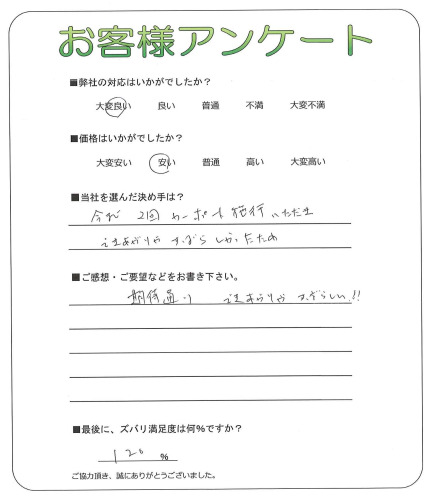 お客様アンケート
■弊社の対応はいかがでしたか?
大変良い 良い 普通 不満 大変不満
■価格はいかがでしたか?
大変安い 安い 普通 高い 大変高い
■当社を選んだ決め手は?
今迄 2回 カーポート施行いただき
出来あがりが すばらしかったため
■ご感想・ご要望などをお書き下さい。
期待通り 出来あがりが すばらしい!!
■最後に、ズバリ満足度は何%ですか?
120 %
ご協力頂き、誠にありがとうございました。